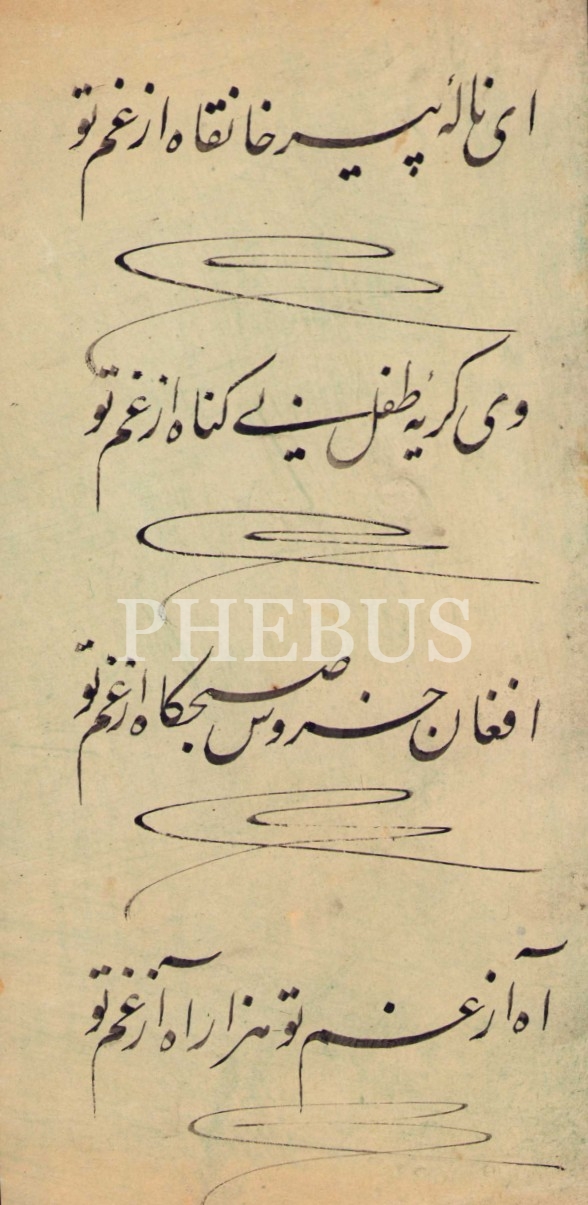 ای نالۀ پیر خانقاه از غم تو
وی کریۀ طفل بی کناه از غم تو
PHEBUS
افغان خروس صبحکاه از غم تو
آه از غم تو هزار آه از غم تو